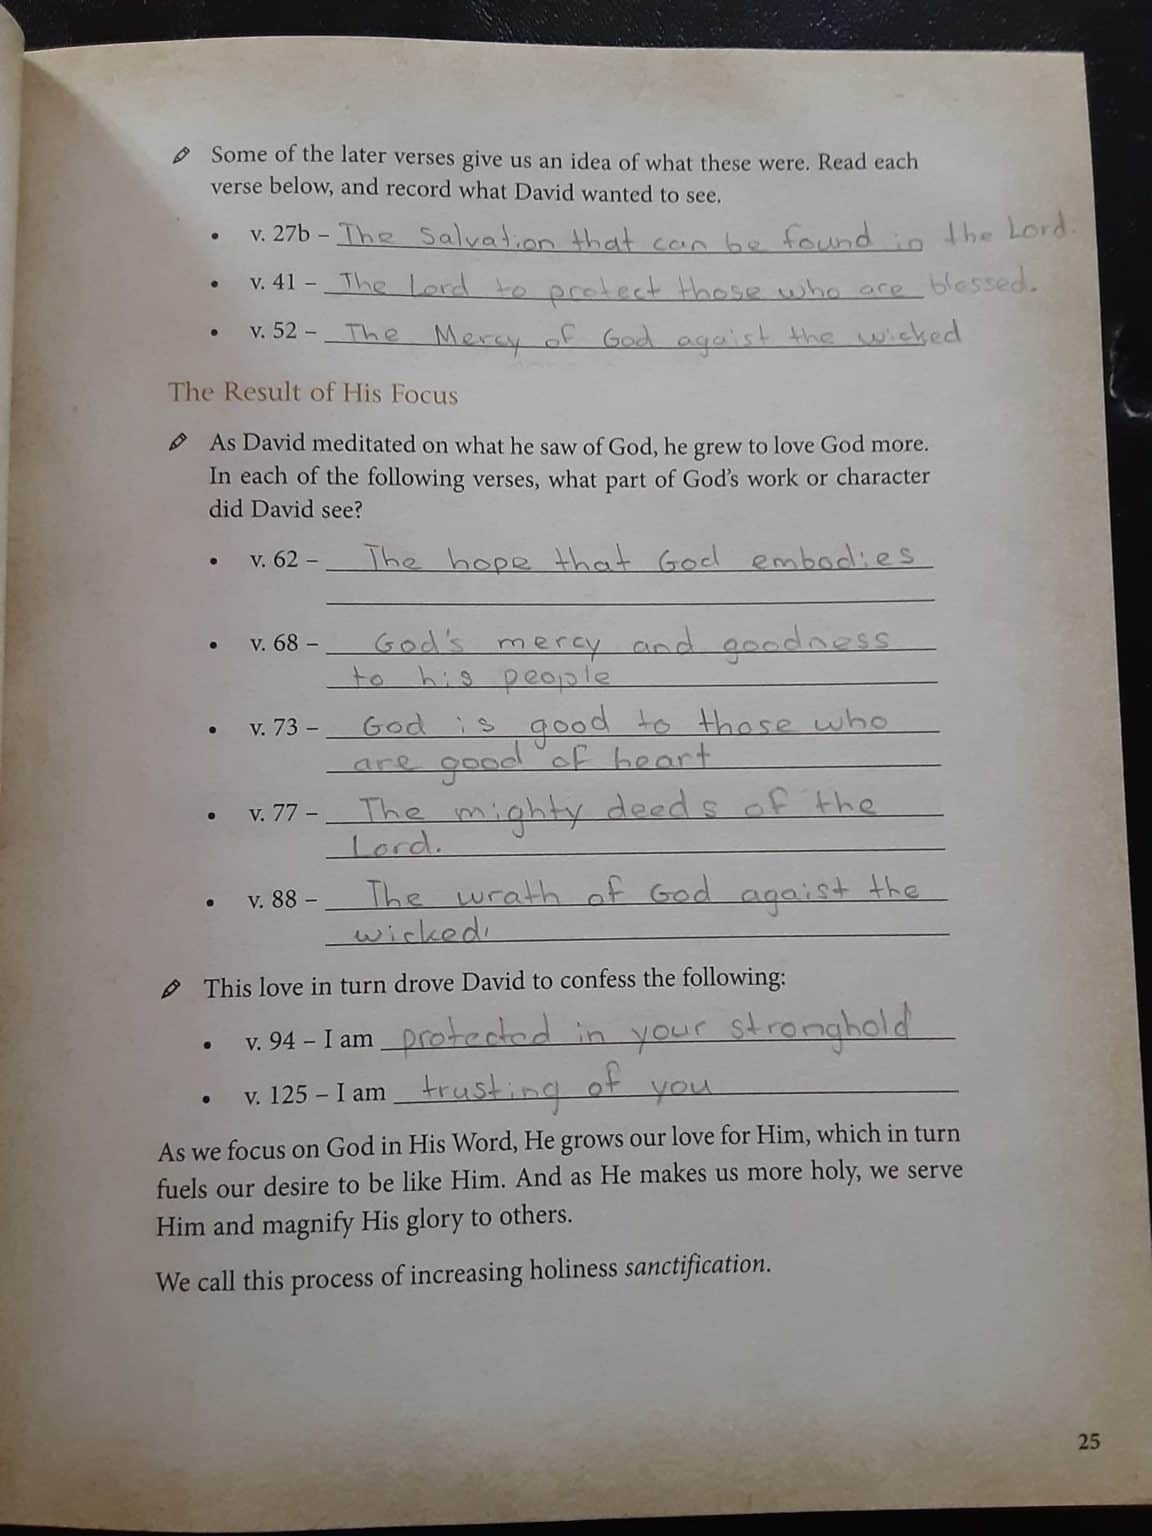 Some of the later verses give us an idea of what these were. Read each
verse below, and record what David wanted to see.
• v. 27b – The Salvation that can be found in the Lord.
• v. 41 – The Lord to protect those who are blessed.
• v. 52 – The Mercy of God agaist the wicked
The Result of His Focus
As David meditated on what he saw of God, he grew to love God more.
In each of the following verses, what part of God's work or character
did David see?
• v. 62 – The hope that God embodies
• v. 68 – God's mercy and goodness
to his people
• v. 73 – God is good to those who
are good of heart
• v. 77 – The mighty deeds of the
Lord.
• v. 88 – The wrath of God agaist the
wicked.
This love in turn drove David to confess the following:
• v. 94 – I am protected in your stronghold
• v. 125 – I am trusting of you
As we focus on God in His Word, He grows our love for Him, which in turn
fuels our desire to be like Him. And as He makes us more holy, we serve
Him and magnify His glory to others.
We call this process of increasing holiness sanctification.
25